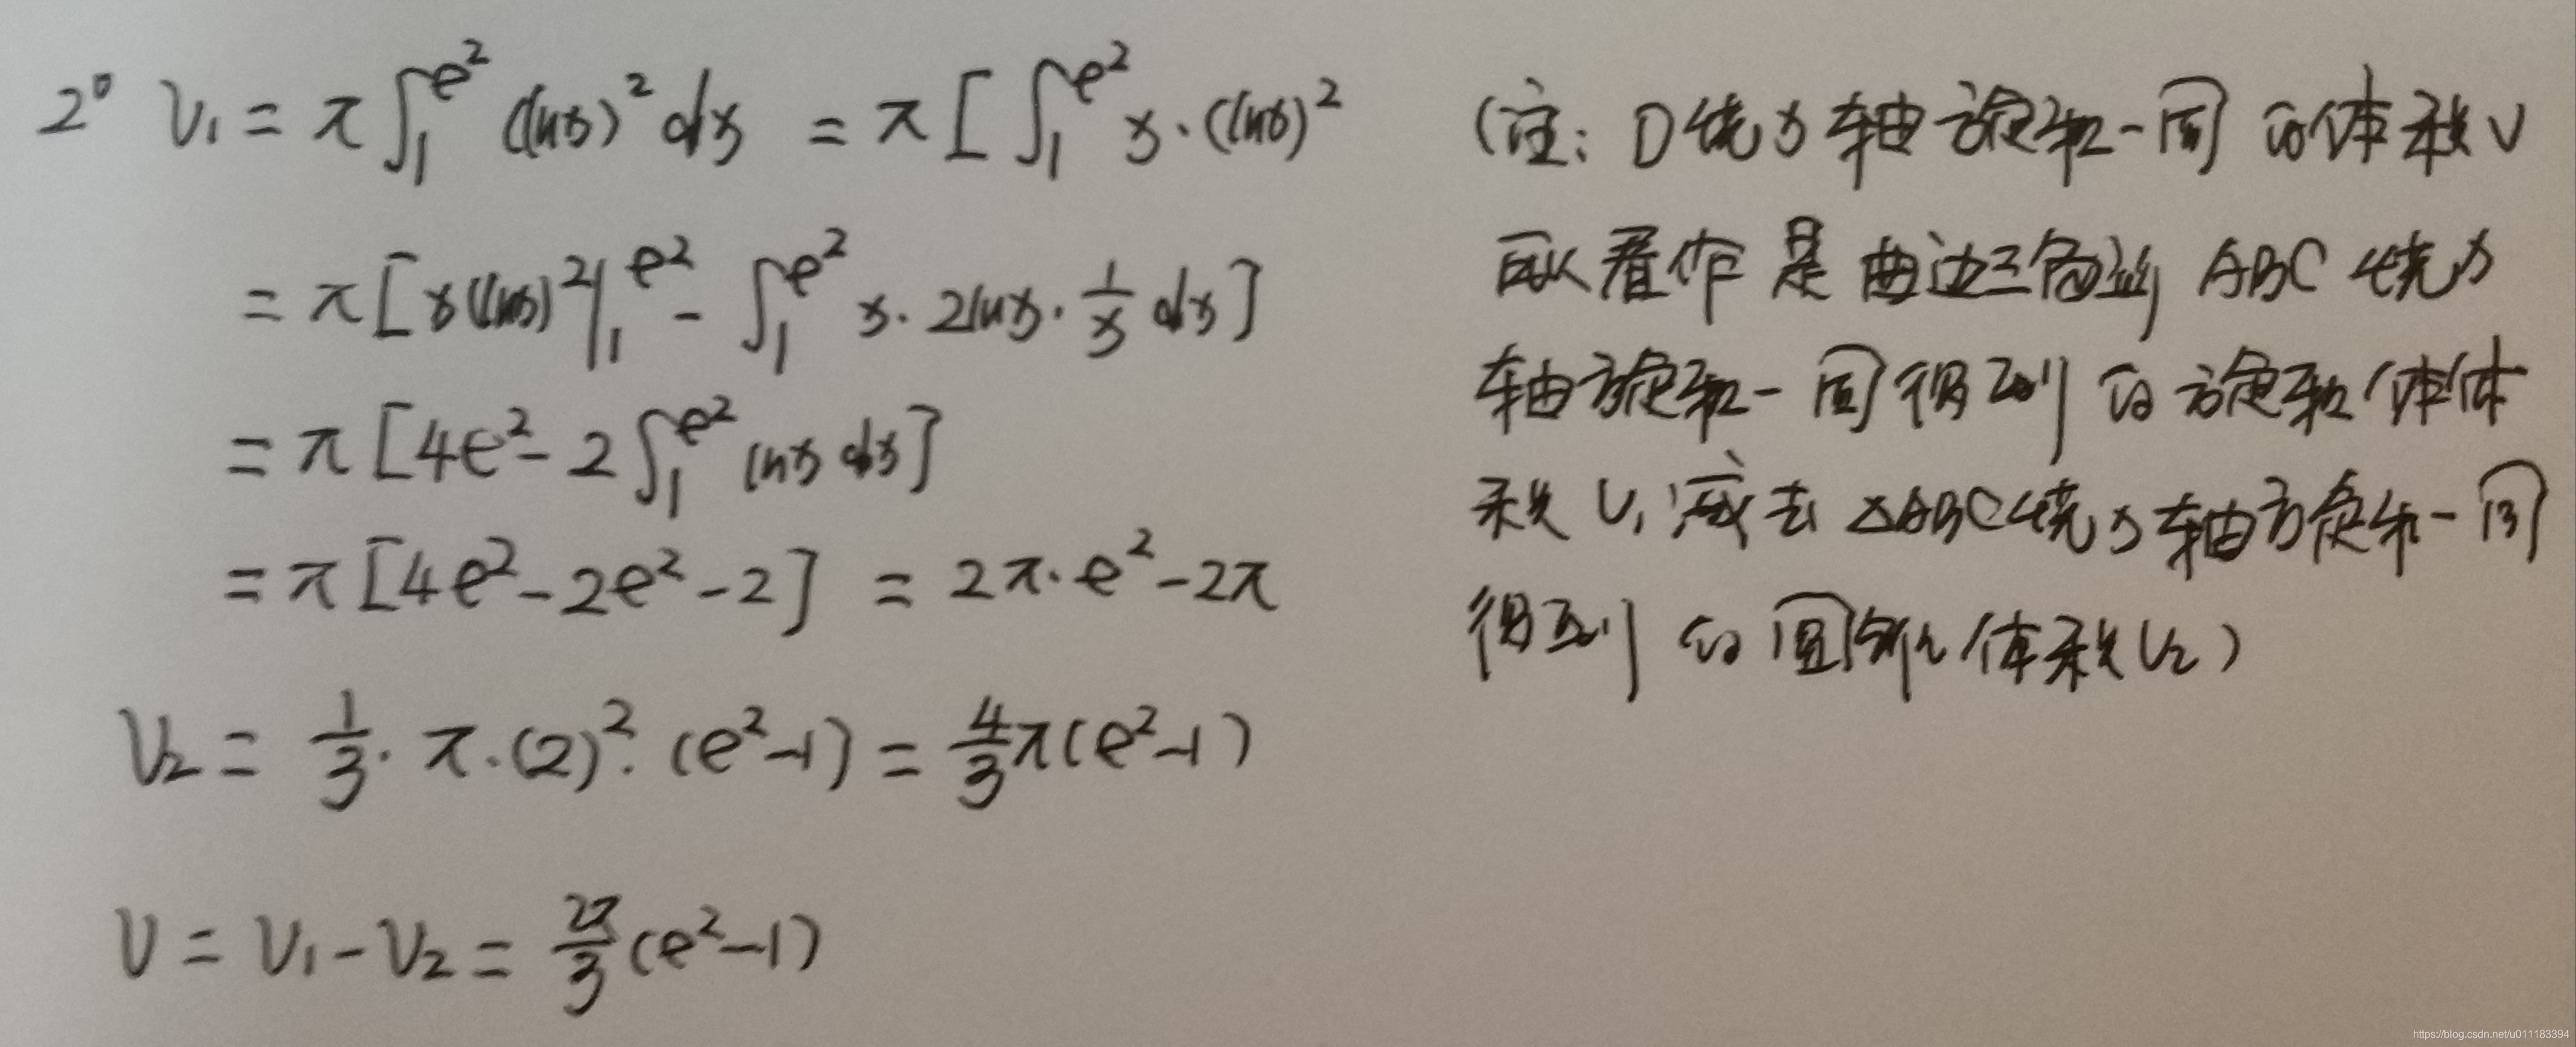 2° V₁ = π∫₁^{e²} (lnx)² dx = π[∫₁^{e²} x·(lnx)²
= π[x(lnx)²|₁^{e²} - ∫₁^{e²} x·2lnx·1/x dx]
= π[4e² - 2∫₁^{e²} lnx dx]
= π[4e² - 2e² - 2] = 2π·e² - 2π
V₂ = 1/3·π·(2)²·(e²-1) = 4/3π(e²-1)
V = V₁ - V₂ = 2π/3(e²-1)
(注: D绕x轴旋转一周的体积V
可以看作是曲边三角形ABC绕x
轴旋转一周得到的旋转体体
积V₁减去△ABC绕x轴旋转一周
得到的圆锥体积V₂)
https://blog.csdn.net/u011183394